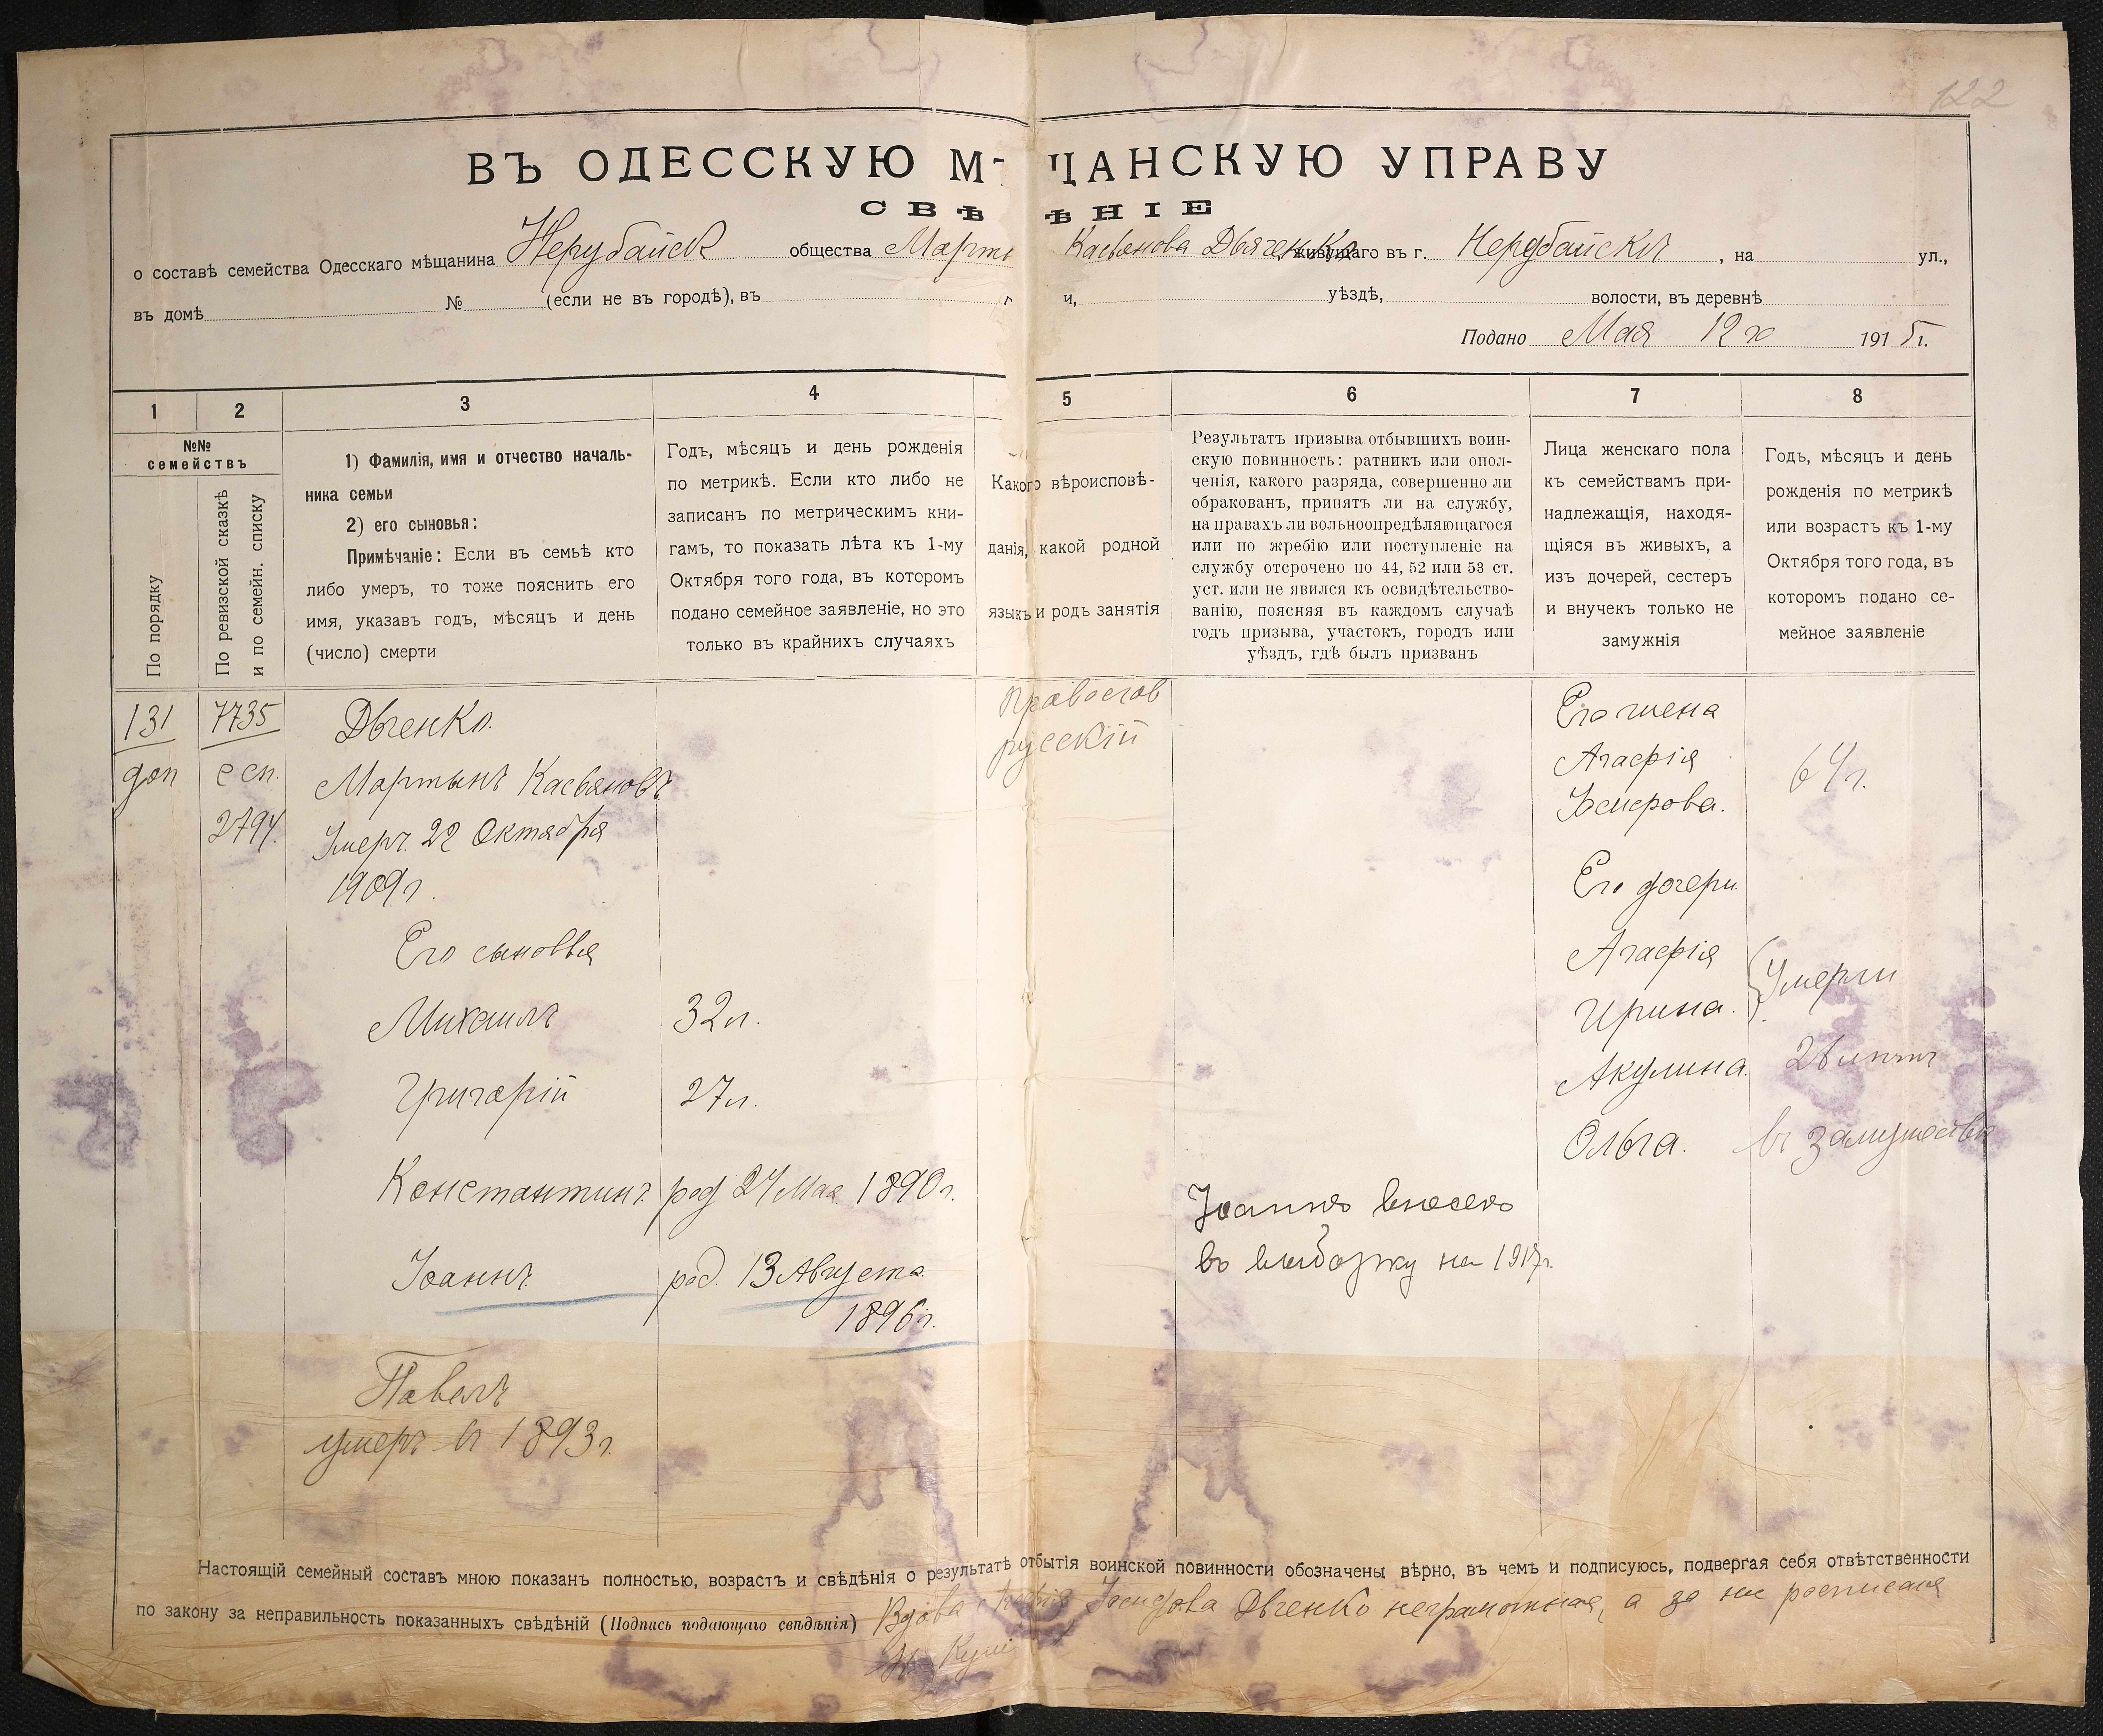 122
ВЪ ОДЕССКУЮ М ЩАНСКУЮ УПРАВУ
СВѢ ѢНІЕ
о составѣ семейства Одесскаго мѣщанина Нерубайск общества Марты Касьянова Дьяченко, живущаго въ г. Нерубайскѣ, на ул.,
въ домѣ № (если не въ городѣ), въ г и, уѣздѣ, волости, въ деревнѣ
Подано Мая 12 1915 г.
1 2 3 4 5 6 7 8
№№
семействъ
По порядку
По ревизской сказкѣ
и по семейн. списку
1) Фамилія, имя и отчество началь-
ника семьи
2) его сыновья:
Примѣчаніе: Если въ семьѣ кто
либо умеръ, то тоже пояснить его
имя, указавъ годъ, мѣсяцъ и день
(число) смерти
Годъ, мѣсяцъ и день рожденія
по метрикѣ. Если кто либо не
записанъ по метрическимъ кни-
гамъ, то показать лѣта къ 1-му
Октября того года, въ которомъ
подано семейное заявленіе, но это
только въ крайнихъ случаяхъ
Какого вѣроисповѣ-
данія, какой родной
языкъ и родъ занятія
Результатъ призыва отбывшихъ воин-
скую повинность: ратникъ или опол-
ченія, какого разряда, совершенно ли
обракованъ, принятъ ли на службу,
на правахъ ли вольноопредѣляющагося
или по жребію или поступленіе на
службу отсрочено по 44, 52 или 53 ст.
уст. или не явился къ освидѣтельство-
ванію, поясняя въ каждомъ случаѣ
годъ призыва, участокъ, городъ или
уѣздъ, гдѣ былъ призванъ
Лица женскаго пола
къ семействамъ при-
надлежащія, находя-
щіяся въ живыхъ, а
изъ дочерей, сестеръ
и внучекъ только не
замужнія
Годъ, мѣсяцъ и день
рожденія по метрикѣ
или возрастъ къ 1-му
Октября того года, въ
которомъ подано се-
мейное заявленіе
131
доп
7735
с сп.
2794.
Дяченко.
Мартынъ Касьяновъ
Умеръ 22 Октября
1909 г.
Его сыновья
Михаилъ 32 л.
Григорій 27 л.
Константинъ род 24 Мая 1890 г.
Іоаннъ род. 13 Августа
1896 г.
Павелъ
умеръ въ 1893 г.
Православ
русскій
Іоаннъ внесенъ
въ выборку на 1917 г.
Его жена
Агафія 64 г.
Іосифова.
Его дочери
Агафія
Ирина. Умерли
Акулина. 26 лѣтъ
Ольга. въ замужествѣ
Настоящій семейный составъ мною показанъ полностью, возрастъ и свѣдѣнія о результатѣ отбытія воинской повинности обозначены вѣрно, въ чемъ и подписуюсь, подвергая себя отвѣтственности
по закону за неправильность показанныхъ свѣдѣній (Подпись подающаго свѣдѣнія) Вдова Агафія Іосифова Дяченко неграмотная, а за не росписался